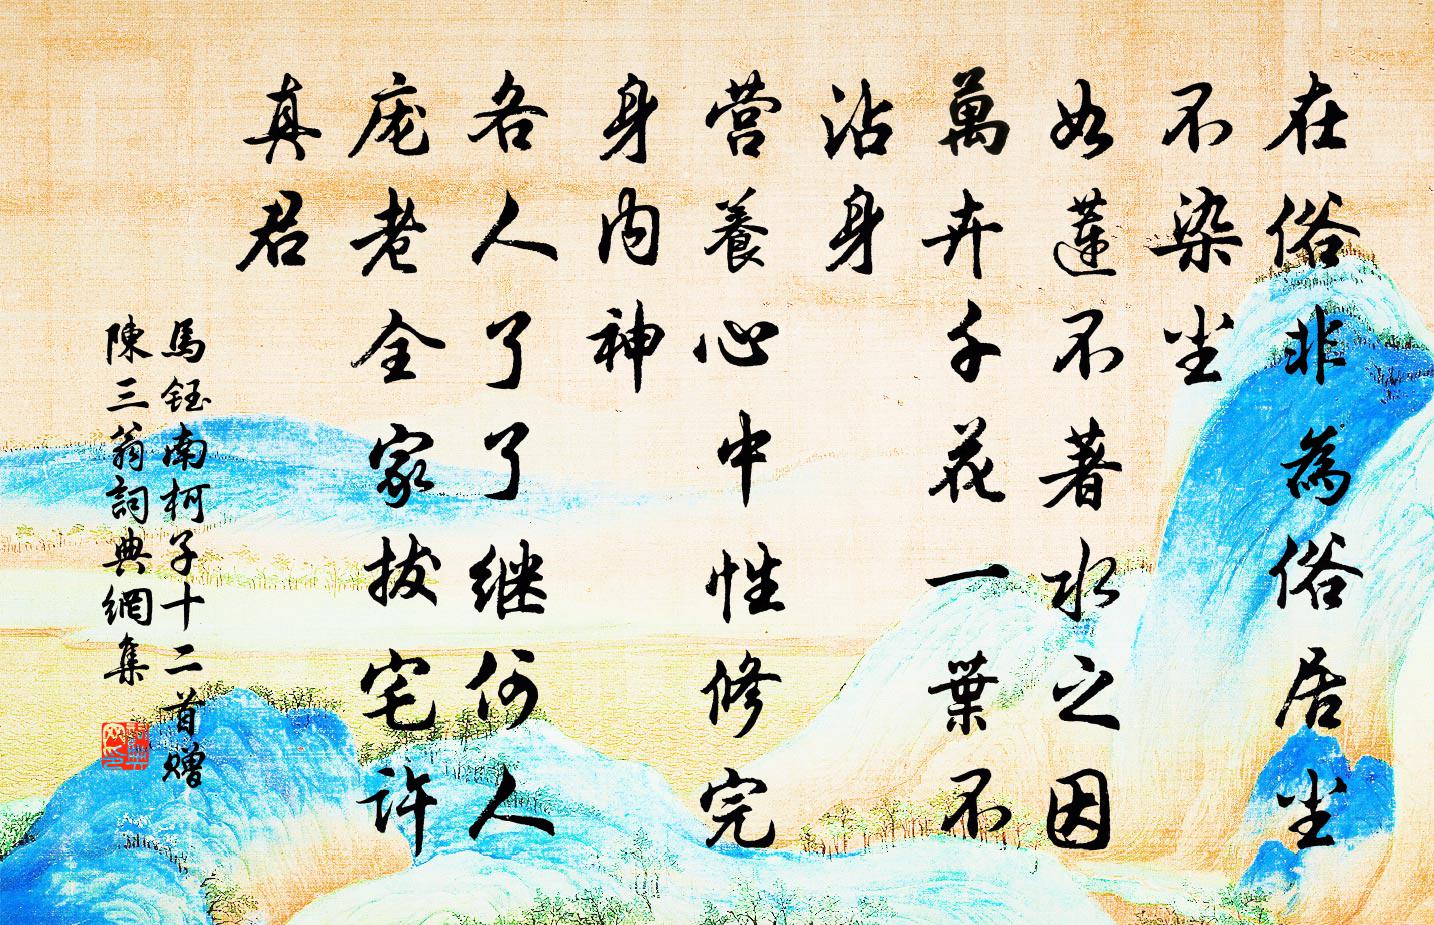 在俗非為俗居尘
不染尘
如蓮不著水之因
萬卉千花一葉不
沾身
营養心中性修完
身内神
各人了了继何人
庞老全家拔宅许
真君
馬钰南柯子十二首赠
陳三翁詞典網集